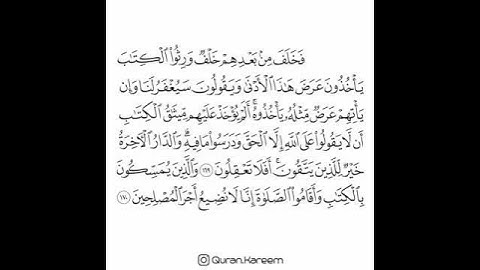 فَخَلَفَ مِنۢ بَعۡدِهِمۡ خَلۡفٞ وَرِثُواْ ٱلۡكِتَٰبَ
يَأۡخُذُونَ عَرَضَ هَٰذَا ٱلۡأَدۡنَىٰ وَيَقُولُونَ سَيُغۡفَرُ لَنَا وَإِن
يَأۡتِهِمۡ عَرَضٞ مِّثۡلُهُۥ يَأۡخُذُوهُۚ أَلَمۡ يُؤۡخَذۡ عَلَيۡهِم مِّيثَٰقُ ٱلۡكِتَٰبِ
أَن لَّا يَقُولُواْ عَلَى ٱللَّهِ إِلَّا ٱلۡحَقَّ وَدَرَسُواْ مَا فِيهِۗ وَٱلدَّارُ ٱلۡأٓخِرَةُ
خَيۡرٞ لِّلَّذِينَ يَتَّقُونَۚ أَفَلَا تَعۡقِلُونَ ١٦٩ وَٱلَّذِينَ يُمَسِّكُونَ
بِٱلۡكِتَٰبِ وَأَقَامُواْ ٱلصَّلَوٰةَ إِنَّا لَا نُضِيعُ أَجۡرَ ٱلۡمُصۡلِحِينَ ١٧٠
Quran.Kareem